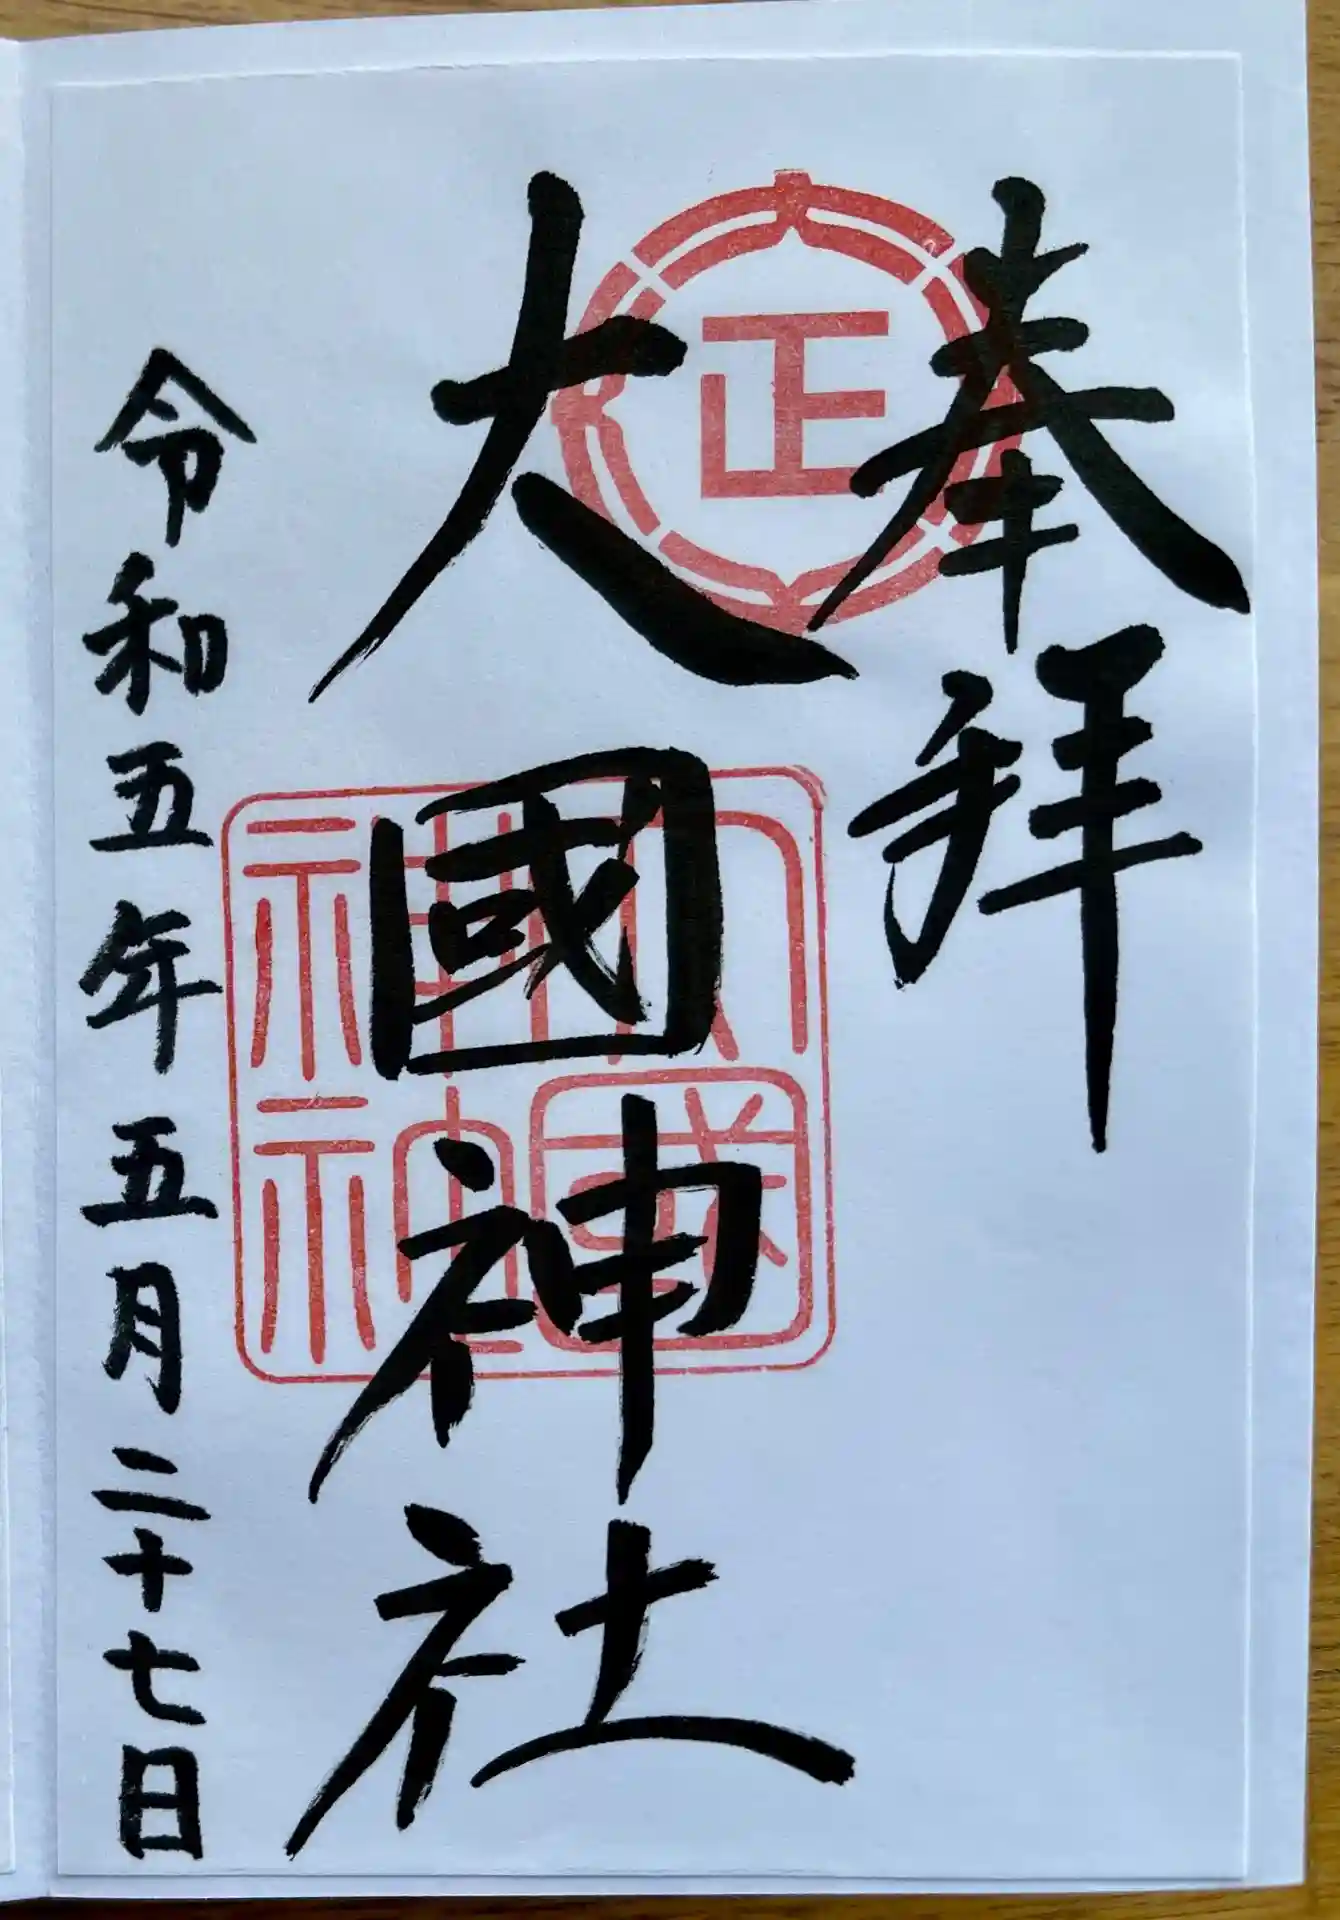 奉拝
正
大國神社
大國神社神
令和五年五月二十七日